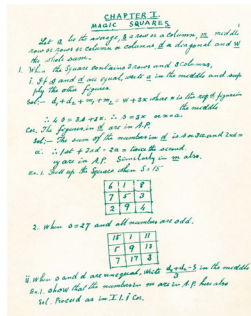 CHAPTER I.
MAGIC SQUARES
Let a be the average, s a row or a column, m middle
row or rows or column or columns, d a diagonal and W
the whole sum.
1. When the Square contains 3 rows and 3 columns,
i. If s and d are equal, write a in the middle and sup
ply the other figures.
Sol:- d₁ + d₂ + m₁ + m₂ = W + 3x where x is the reqd figure in
the middle
∴ 4 s = 3s + 3x. ∴ s = 3x or x = a.
Cor. The figures in d are in A.P.
Sol:- The sum of the numbers in d is s or 3a and 2nd =
a. ∴ 1st + 3rd = 2a = twice the second.
∴ they are in A.P. Similarly in m also.
Ex. 1. Fill up the Square when S = 15
6 1 8
7 5 3
2 9 4
2. When S = 27 and all numbers are odd.
15 1 11
5 9 13
7 17 3
ii. When s and d are unequal, write (d₁+d₂-s)/3 in the middle
Ex. 1. Show that the numbers in m are in A.P. here also
Sol. Proceed as in I. 1. i Cor.